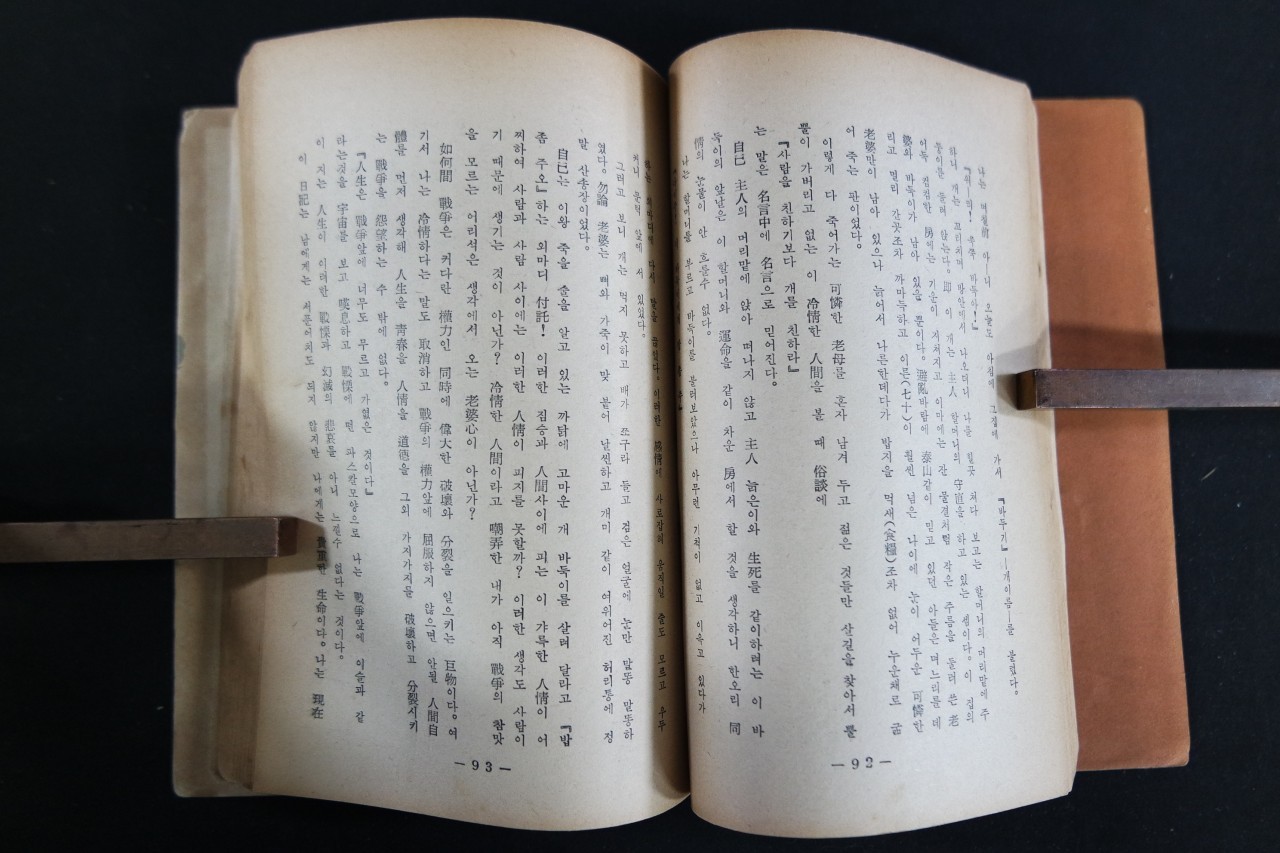 나는 며칠前 아―니 오늘도 아침에 그집에 가서 『바두기』―개이름―를 불렀다.
『워―워! 쭈쭈 바둑아!』
하니 개는 꼬리치며 방안에서 나오더니 나를 힐끗 쳐다 보고는 할머니의 머리맡에 주
둥이를 돌려 앉는다. 即 이 개는 主人 할머니의 守直을 하고 있는 셈이다. 이 집의
어둑 컴컴한 房에는 기운이 지쳐지고 이마에는 잔 물결처럼 작은 주름을 둘러 쓴 老
婆와 바둑이가 남아 있을 뿐이다. 避亂바람에 泰山같이 믿고 있던 아들은 며느리를 데
리고 멀리 간곳조차 까마득하고 이른(七十)이 훨씬 넘은 나이에 눈이 어두운 可憐한
老婆만이 남아 있으나 늙어서 나른한데다가 밥지을 먹새(食糧)조차 없어 누운채로 굶
어 죽는 판이었다.
이렇게 다 죽어가는 可憐한 老母를 혼자 남겨 두고 젊은 것들만 살길을 찾아서 뿔
뿔이 가버리고 없는 이 冷情한 人間을 볼 때 俗談에
『사람을 친하기보다 개를 친하라』
는 말은 名言中에 名言으로 믿어진다.
自己 主人의 머리맡에 앉아 떠나지 않고 主人 늙은이와 生死를 같이하려는 이 바
둑이의 앞날은 이 할머니와 運命을 같이 차운 房에서 할 것을 생각하니 한오리 同
情의 눈물이 안 흐를수 없다.
나는 할머니를 부르고 바둑이를 불러보았으나 아무런 기척이 없고 이윽고 있다가
하는 외마디에 다시 발을 옮겼다. 이러한 感情에 사로잡혀 움직일 줄도 모르고 우두
커니 문턱 앞에 서 있었다.
그러고 보니 개는 먹지 못하고 배가 쪼구라 들고 검은 얼굴에 눈만 말똥 말똥하
였다. 勿論 老婆는 뼈와 가죽이 맞 붙어 날씬하고 개미 같이 여위어진 허리통에 정
말 산송장이었다.
自己는 이왕 죽을 줄을 알고 있는 까닭에 고마운 개 바둑이를 살려 달라고 『밥
좀 주오』하는 외마디 付託! 이러한 짐승과 人間사이에 피는 이 갸륵한 人情이 어
찌하여 사람과 사람 사이에는 이러한 人情이 피지를 못할까? 이러한 생각도 사람이
기 때문에 생기는 것이 아닌가? 冷情한 人間이라고 嘲弄한 내가 아직 戰爭의 참맛
을 모르는 어리석은 생각에서 오는 老婆心이 아닌가?
如何間 戰爭은 커다란 權力인 同時에 偉大한 破壞와 分裂을 일으키는 巨物이다. 여
기서 나는 冷情하다는 말도 取消하고 戰爭의 權力앞에 屈服하지 않으면 안될 人間自
體를 먼저 생각해 人生을 靑春을 人情을 道德을 그외 가지가지를 破壞하고 分裂시키
는 戰爭을 怨望하는 수 밖에 없다.
『人生은 戰爭앞에 너무도 무르고 가엾은 것이다』
라는것을 宇宙를 보고 嘆息하고 戰慄에 떤 파스칼모양으로 나는 戰爭앞에 이슬과 같
이 지는 人生이 이러한 戰慄과 幻滅의 悲哀를 아니 느낄수 없다는 것이다.
이 日記는 남에게는 서푼어치도 되지 않지만 나에게는 貴重한 生命이다. 나는 現在
―92―
―93―